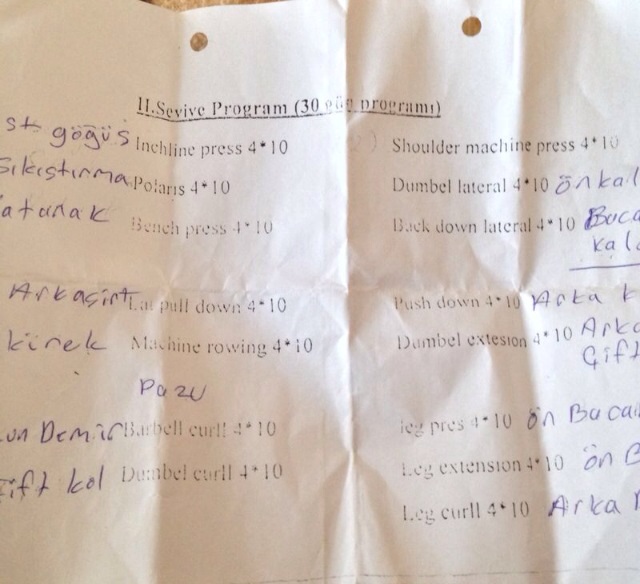 II.Sevive Program (30 gün programı)
st göğüs Inchline press 4*10
Sıkıştırma Polaris 4*10
atarak Bench press 4*10
Arkasırt Lat pull down 4*10
kürek Machine rowing 4*10
Pazu
un Demir Barbell curll 4*10
Çift kol Dumbel curll 4*10
Shoulder machine press 4*10
Dumbel lateral 4*10 ön kal
Back down lateral 4*10 Buca
kal
Push down 4*10 Arka k
Dumbel extesion 4*10 Arka
Çift
leg pres 4*10 ön Bucak
Leg extension 4*10 ön B
Leg curll 4*10 Arka